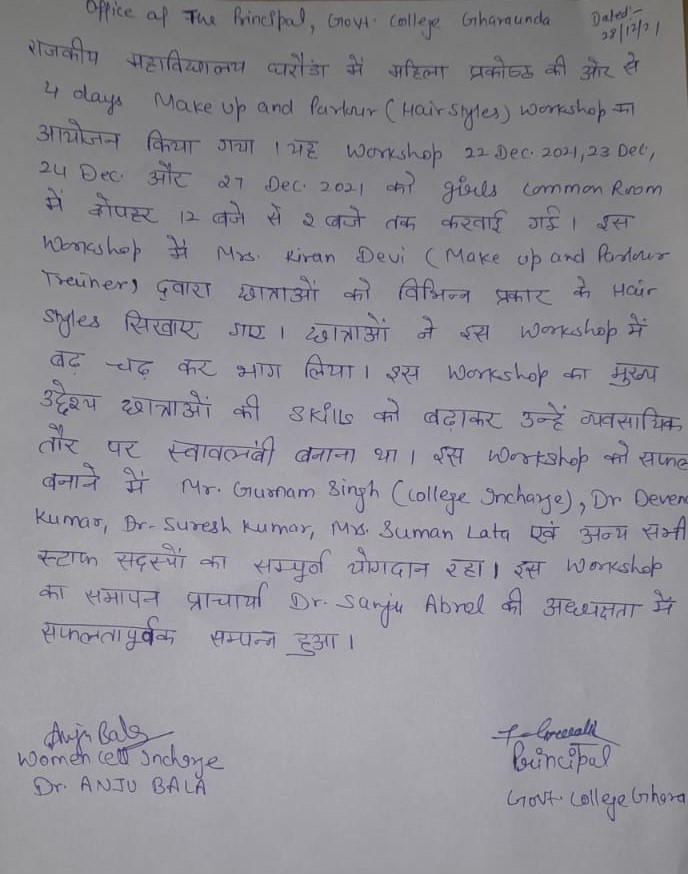 Office of The Principal, Govt. College Gharaunda Dated:-
28/12/21
राजकीय महाविद्यालय घरौंडा में महिला प्रकोष्ठ की ओर से
4 days Make up and Parlour (Hair Styles) Workshop का
आयोजन किया गया । यह Workshop 22 Dec. 2021, 23 Dec,
24 Dec. और 27 Dec. 2021 को girls Common Room
में दोपहर 12 बजे से 2 बजे तक करवाई गई । इस
Workshop में Mrs. Kiran Devi (Make up and Parlour
Treiner) द्वारा छात्राओं को विभिन्न प्रकार के Hair
Styles सिखाए गए । छात्राओं ने इस Workshop में
बढ़ चढ़ कर भाग लिया । इस Workshop का मुख्य
उद्देश्य छात्राओं की Skills को बढ़ाकर उन्हें व्यवसायिक
तौर पर स्वावलंबी बनाना था । इस Workshop को सफल
बनाने में Mr. Gurnam Singh (College Incharge), Dr Deven
Kumar, Dr. Suresh Kumar, Mrs. Suman Lata एवं अन्य सभी
स्टाफ सदस्यों का सम्पूर्ण योगदान रहा । इस Workshop
का समापन प्राचार्या Dr. Sanju Abrol की अध्यक्षता में
सफलतापूर्वक सम्पन्न हुआ ।
Anju Bala
Women Cell Incharge
Dr. ANJU BALA
Principal
Govt. College Ghara